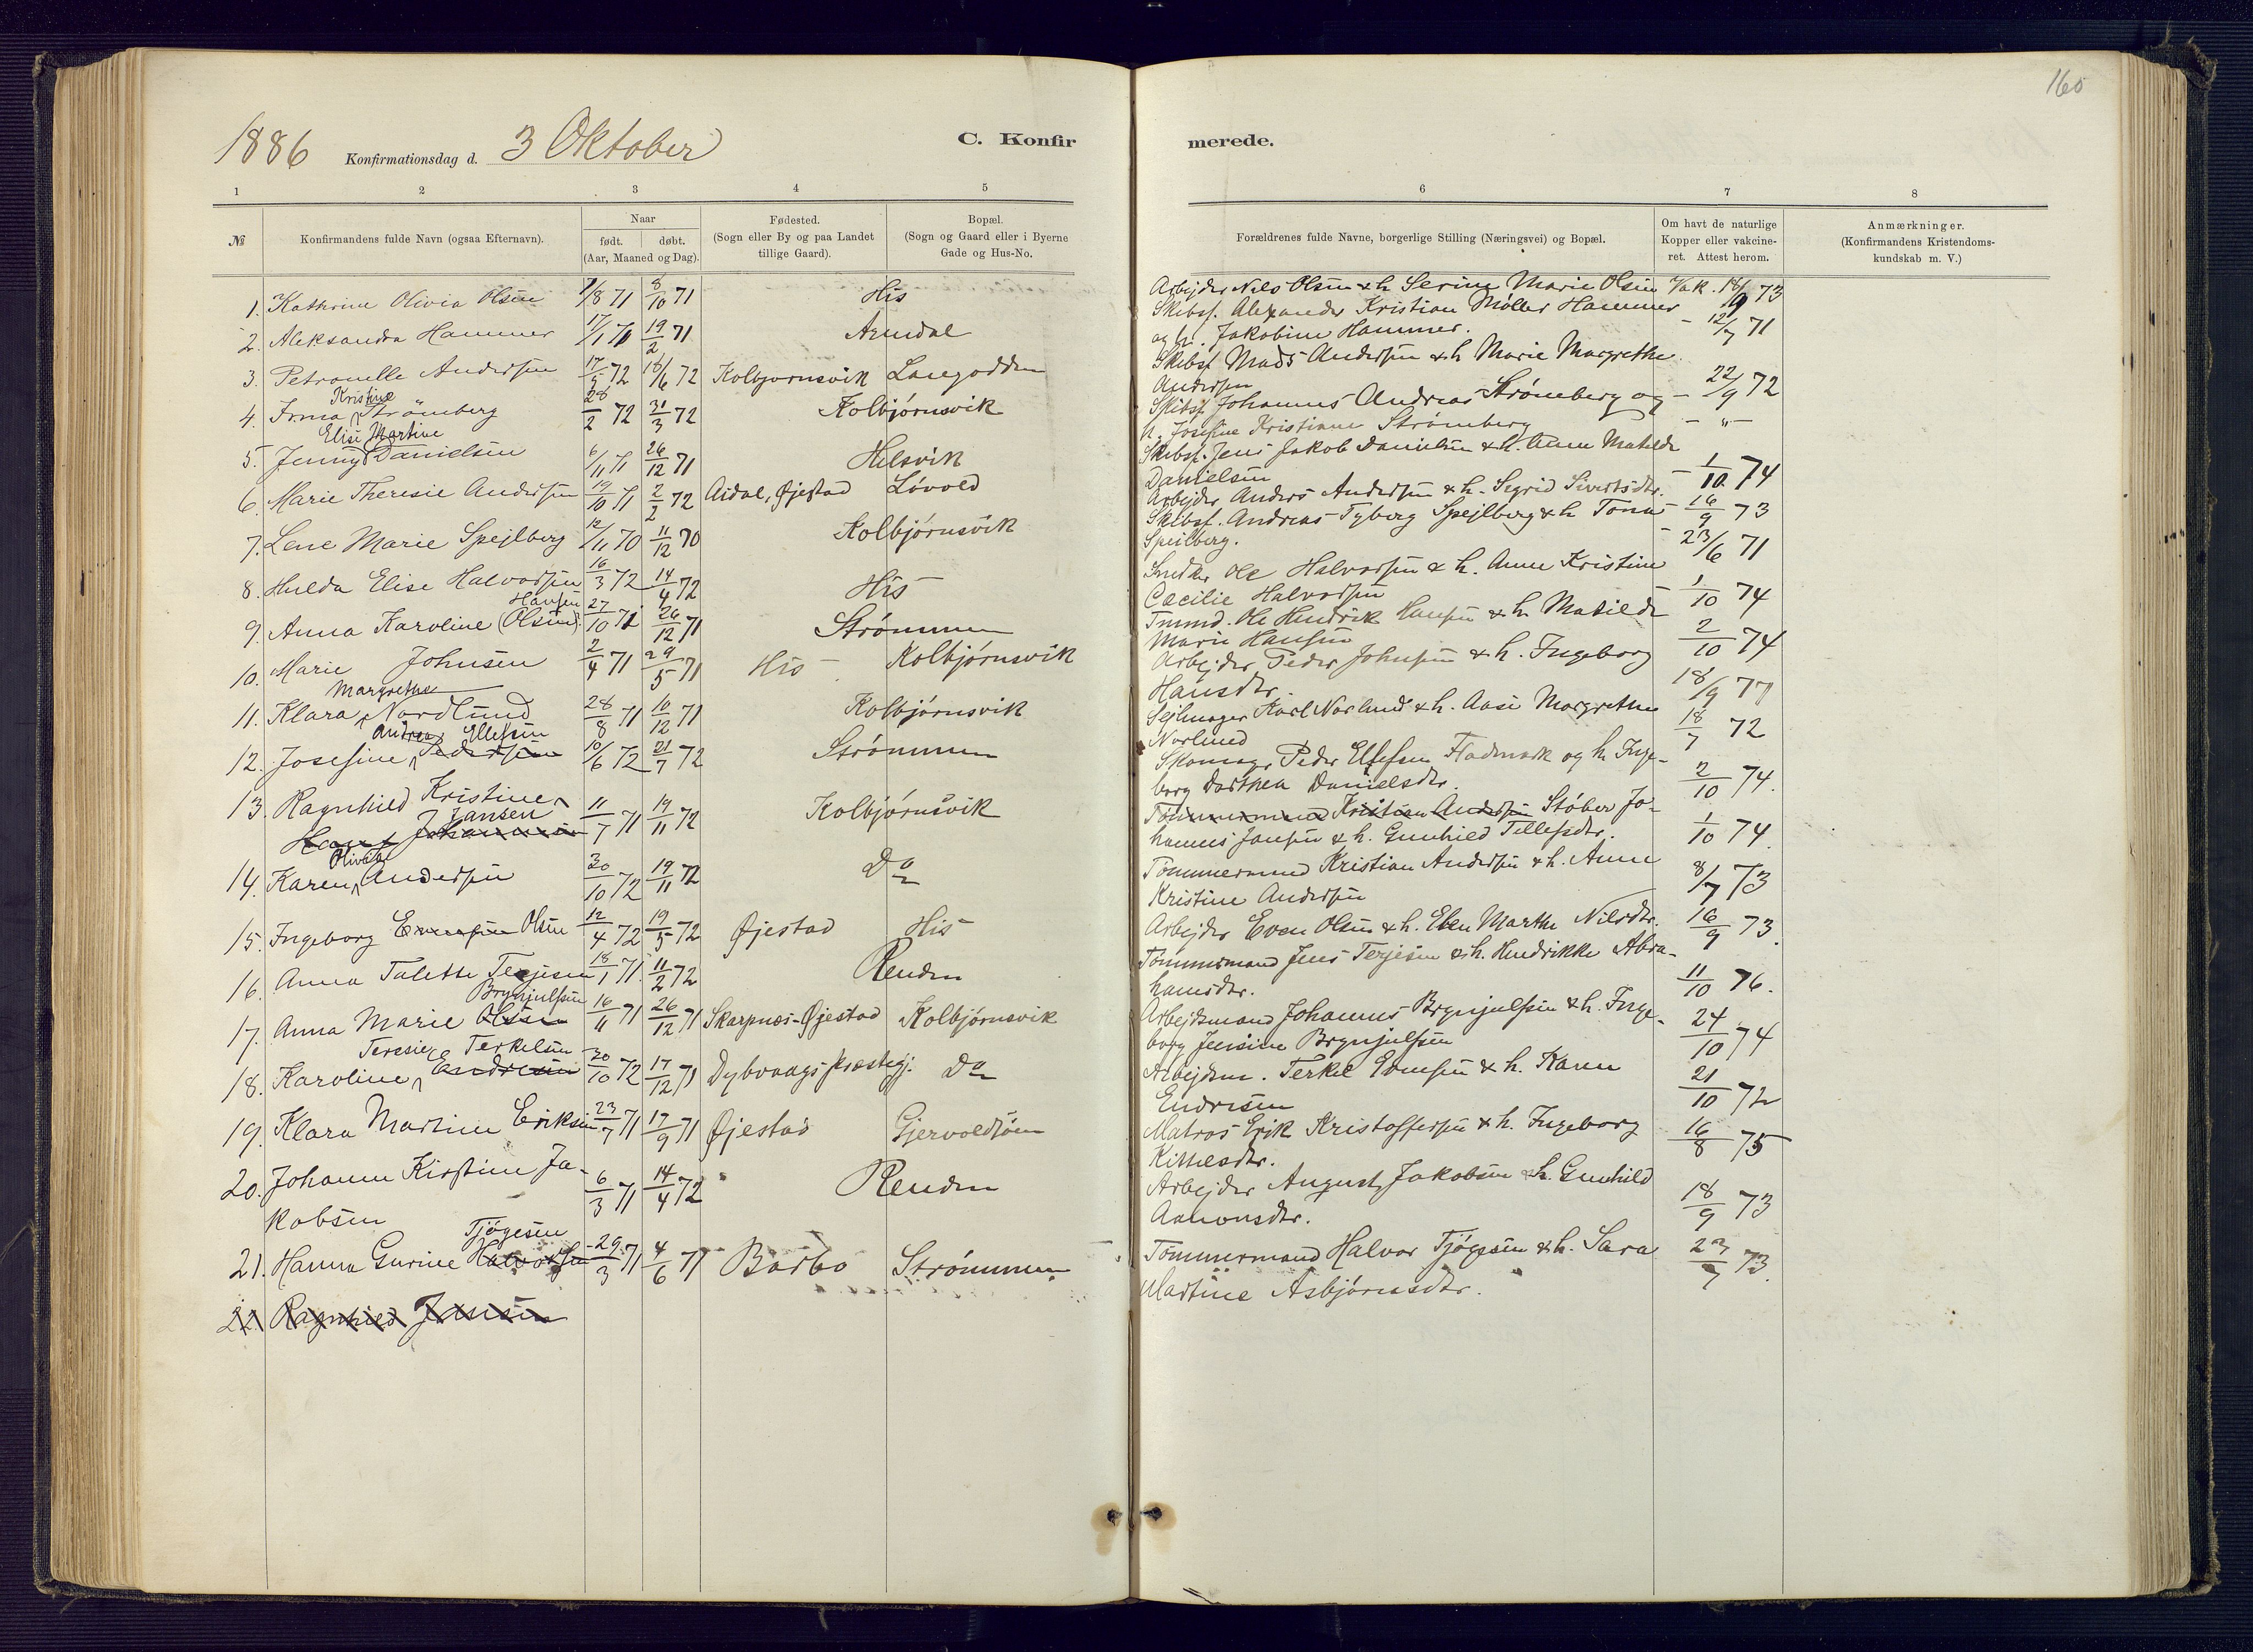 160
1886 Konfirmationsdag d. 3 Oktober
C. Konfirmerede.
1 2 3 4 5 6 7 8
№
Konfirmandens fulde Navn (ogsaa Efternavn).
Naar
født. døbt.
(Aar, Maaned og Dag).
Fødested.
(Sogn eller By og paa Landet
tillige Gaard).
Bopæl.
(Sogn og Gaard eller i Byerne
Gade og Hus-No.
Forældrenes fulde Navne, borgerlige Stilling (Næringsvei) og Bopæl.
Om havt de naturlige
Kopper eller vakcine-
ret. Attest herom.
Anmærkninger.
(Konfirmandens Kristendoms-
kundskab m. V.)
1. Kathrine Olivia Olsen 7/8 71 8/10 71 His
2. Aleksandra Hammer 17/1 71 19/2 71 Arendal
3. Petronelle Andersen 17/5 72 16/6 72 Kolbjornsvik Langodden
4. Irma Kristine Strömberg 28/2 72 31/3 72 Kolbjørnsvik
5. Jenny Elise Martine Danielsen 6/11 71 26/12 71 Hilsvik
6. Marie Theresie Andersen 19/10 71 2/2 72 Aidal, Øjestad Løvold
7. Lene Marie Spejlberg 12/11 70 11/12 70 Kolbjørnsvik
8. Hulda Elise Halvorsen 16/3 72 14/4 72 His
9. Anna Karoline (Olsen) Hansen 27/10 71 26/12 71 Strømmen
10. Marie Johnsen 2/4 71 29/5 71 His Kolbjørnsvik
11. Klara Margrethe Nordlund 28/8 71 10/12 71 Kolbjørnsvik
12. Josefine Andrea Ellefsen Pedersen 10/6 72 21/7 72 Strømmen
13. Ragnhild Kristine
Jansen Johannesen 11/7 71 19/11 72 Kolbjørnsvik
14. Karen Olivia Andersen 30/10 72 19/11 72 Do
15. Ingeborg Evensen Olsen 12/4 72 19/5 72 Øjestad His
16. Anna Talette Terjesen 18/1 71 11/2 72 Renden
17. Anna Marie Olsen Brynjulfsen 16/11 71 26/12 71 Skarpnæs-Øjestad Kolbjørnsvik
18. Karoline Teresie Terkelsen Endresen 30/10 72 17/12 71 Dybvaags præstegj. Do
19. Klara Martine Eriksen 23/7 71 17/9 71 Øjestad Gjervoldsøen
20. Johanne Kirstine Ja-
kobsen 6/3 71 14/4 72 Renden
21. Hanna Gurine Halvorsen Tjøgesen 29/3 71 4/6 71 Barbo Strømmen
22. Ragnhild Jansen
Arbejder Nils Olsen & h. Serine Marie Olsen Vak. 18/9 73
Skibsf. Alexander Kristian Møller Hammer
og h. Jakobine Hammer. - 12/7 71
Skibsf Mads Andersen & h Marie Margrethe
Andersen - 22/9 72
Skibsf Johannes Andreas Strømberg og
h. Josefine Kristiane Strømberg - " -
Skibsf. Jens Jakob Danielsen & h. Anne Matilde
Danielsen - 1/10 74
Arbejder Anders Andersen & h. Segrid Sivertsdtr. 16/9 73
Skibsf. Andreas Tyberg Spejlberg & h Tona
Speilberg. 23/6 71
Snedker Ole Halvorsen & h. Anne Kristine
Cæcilie Halvorsen 1/10 74
Tmmd. Ole Hendrik Hansen & h. Matilde
Marie Hansen 2/10 74
Arbejder Peder Johnsen & h. Ingeborg
Hansdtr. 18/9 77
Sejlmager Karl Norlund & h. Aase Margrethe
Norlund 18/7 72
Skomag. Peder Ellefsen Fladmark og h. Inge-
borg Dorthea Danielsdtr. 2/10 74.
Tømmermand Kristian Andersen Støber Jo-
hannes Jansen & h. Gunhild Tellefsdtr. 1/10 74.
Tømmermand Kristian Andersen & h. Anne
Kristine Andersen 8/7 73
Arbejder Even Olsen & h. Elen Marthe Nilsdtr. 16/9 73.
Tømmermand Jens Terjesen & h. Hendrikke Abra-
hamsdtr. 11/10 76.
Arbejdsmand Johannes Brynjulfsen & h. Inge-
borg Jensine Brynjulfsen 24/10 74
Arbejdsm. Terkel Evensen & h. Karen
Endresen 21/10 72
Matros Erik Kristoffersen & h. Ingeborg
Kittelsdtr. 16/8 75
Arbejder August Jakobsen & h. Gunhild
Aanonsdtr. 18/9 73
Tømmermand Halvor Tjøgesen & h. Sara
Martine Asbjørnsdtr. 23/7 73.